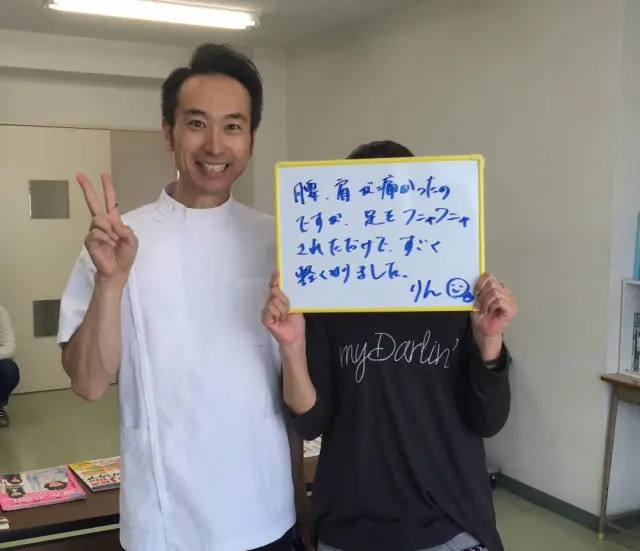 腰、肩が痛かったの
ですが、足をフニャフニャ
されただけで、すごく
軽くなりました。
りん
myDarlin'